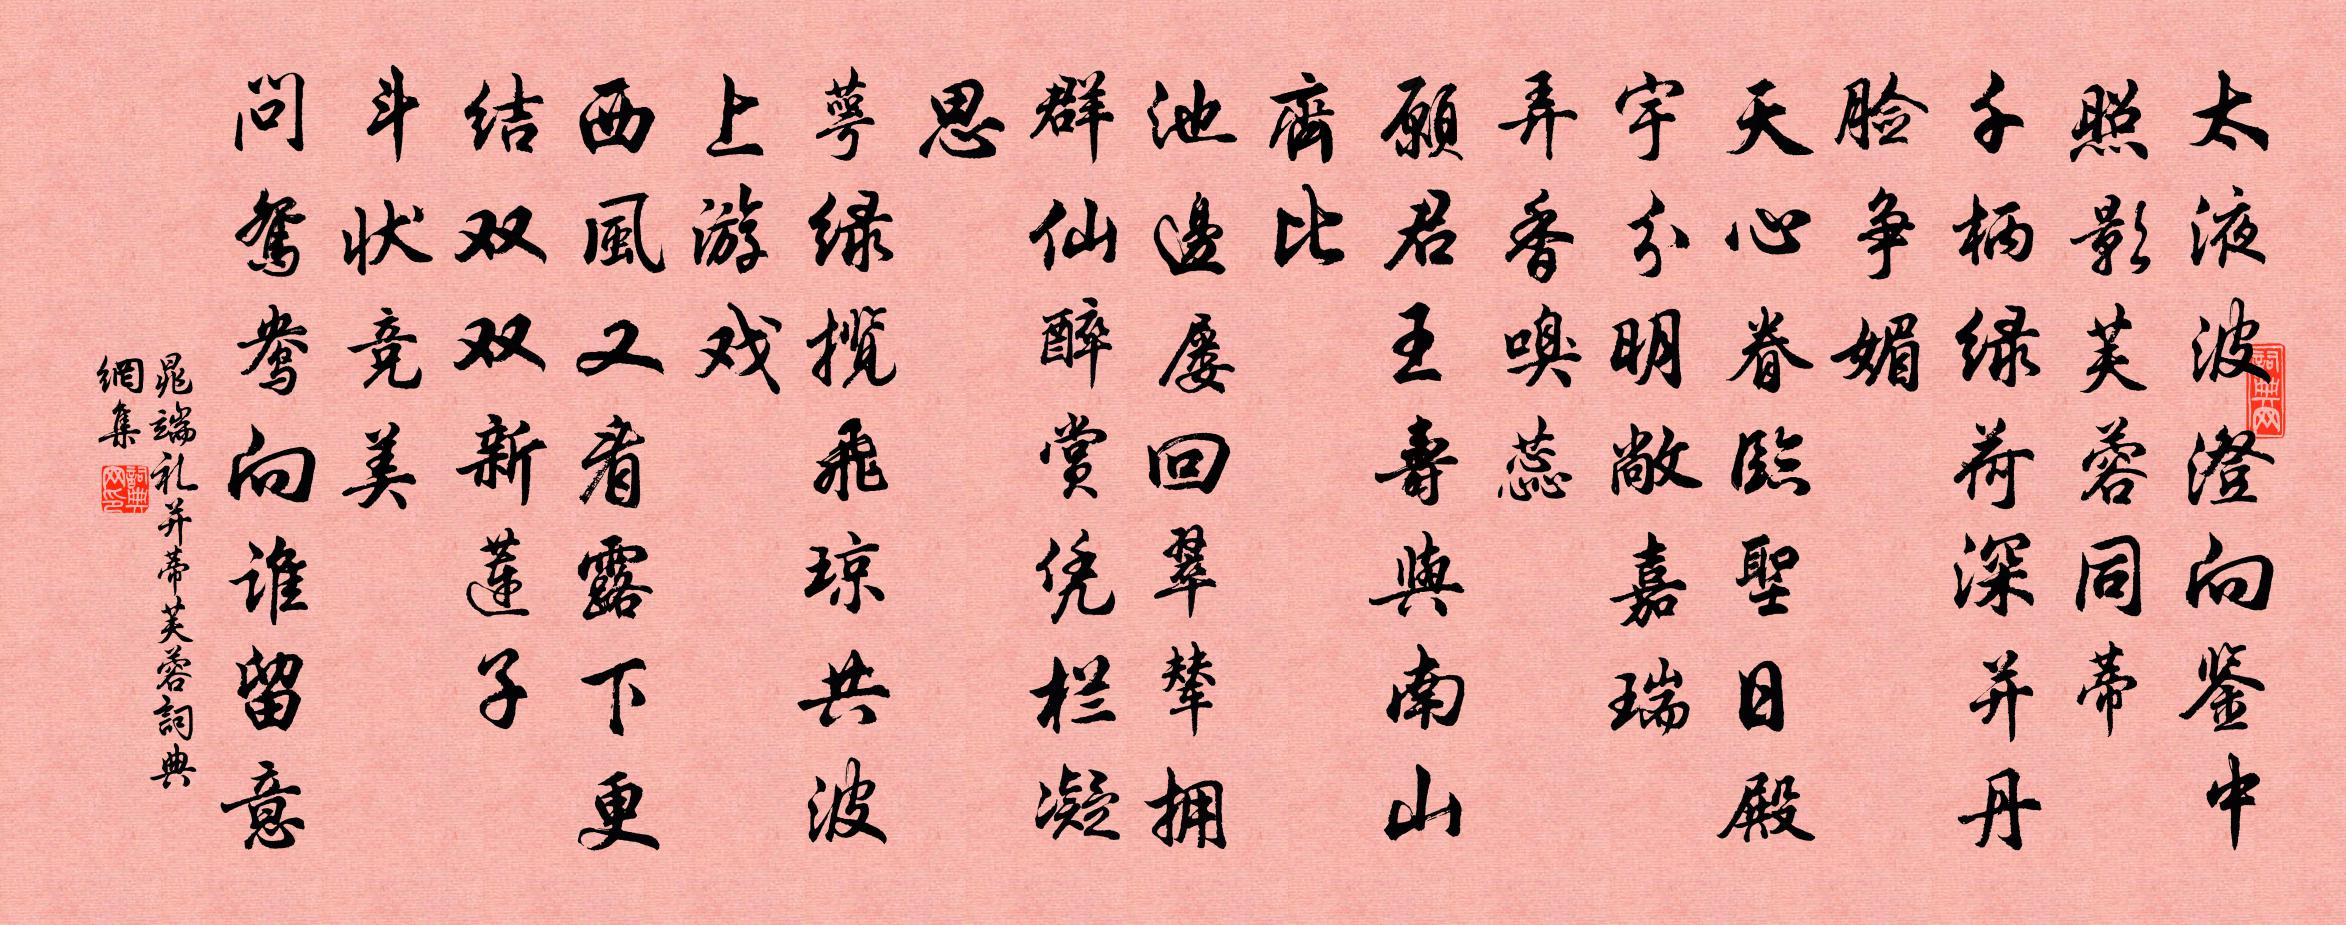 太液波澄向鉴中
照影芙蓉同蒂
千柄绿荷深并丹
脸争媚
天心眷臨聖日殿
宇分明敞嘉瑞
弄香嗅蕊
願君王壽與南山
齊比
池邊屡回翠辇拥
群仙醉赏凭栏凝
思
萼绿揽飛琼共波
上游戏
西風又看露下更
结双双新蓮子
斗状竞美
问鸳鸯向谁留意
晁端礼并蒂芙蓉詞典
網集